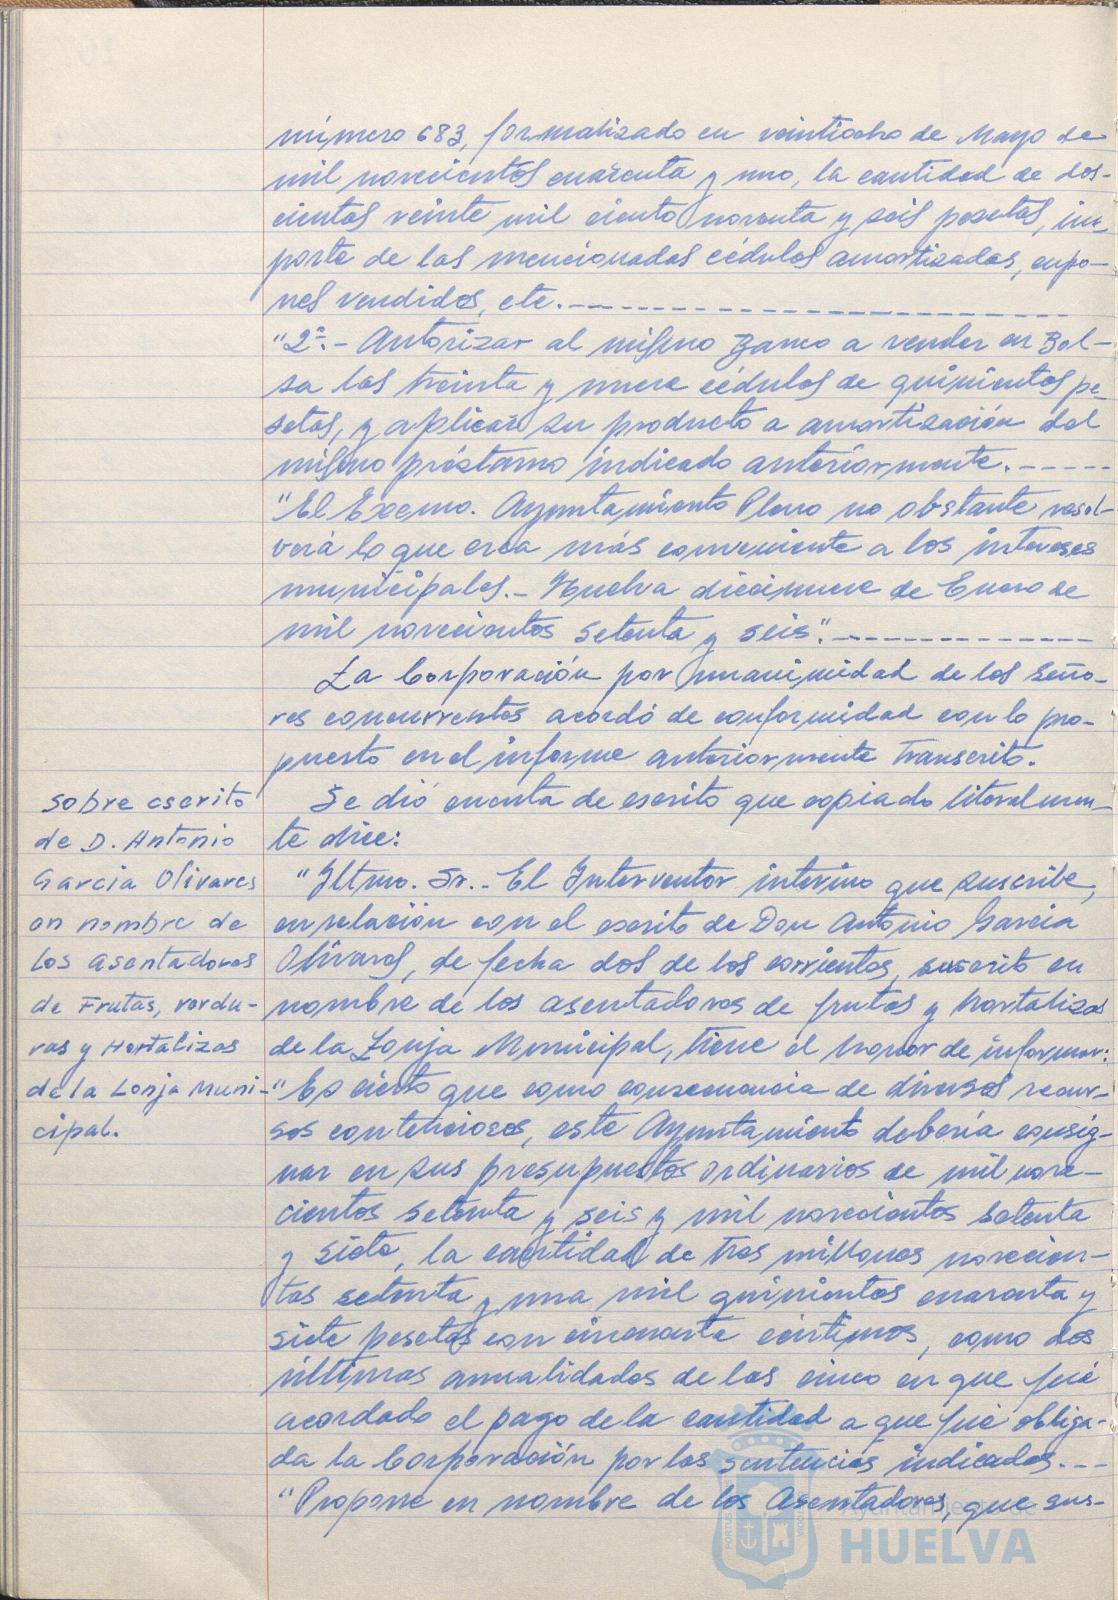 número 683, formalizado en veintiocho de Mayo de
mil novecientos cuarenta y uno, la cantidad de dos-
cientas veinte mil ciento noventa y seis pesetas, im-
porte de las mencionadas cédulas amortizadas, cupo-
nes vendidos, etc.
"2º.- Autorizar al mismo Banco a vender en Bol-
sa las treinta y nueve cédulas de quinientas pe-
setas, y aplicar su producto a amortización del
mismo préstamo indicado anteriormente.
"El Excmo. Ayuntamiento Pleno no obstante resol-
verá lo que crea más conveniente a los intereses
municipales.- Huelva diecinueve de Enero de
mil novecientos setenta y seis".
La Corporación por unanimidad de los Seño-
res concurrentes acordó de conformidad con lo pro-
puesto en el informe anteriormente transcrito.
Sobre escrito
de D. Antonio
Garcia Olivares
en nombre de
los asentadores
de Frutas, verdu-
ras y Hortalizas
de la Lonja Muni-
cipal.
Se dió cuenta de escrito que copiado literalmen-
te dice:
"Iltmo. Sr.- El Interventor interino que suscribe,
en relación con el escrito de Don Antonio Garcia
Olivares, de fecha dos de los corrientes, suscrito en
nombre de los asentadores de frutas y hortalizas
de la Lonja Municipal, tiene el honor de informar:
"Es cierto que como consecuencia de diversos recur-
sos contenciosos, este Ayuntamiento debería consig-
nar en sus presupuestos ordinarios de mil nove-
cientos setenta y seis y mil novecientos setenta
y siete, la cantidad de tres millones novecien-
tas setenta y una mil quinientas cuarenta y
siete pesetas con cincuenta céntimos, como dos
últimas anualidades de las cinco en que fué
acordado el pago de la cantidad a que fué obliga-
da la Corporación por las sentencias indicadas.
"Propone en nombre de los Asentadores, que sus-
Ayuntamiento de
HUELVA